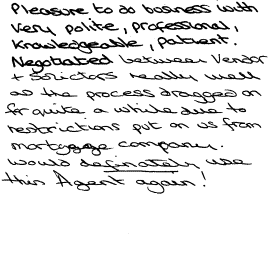 Pleasure to do business with
very polite, professional,
knowledgeable, patient.
Negotiated between Vendor
+ Solictors really well
as the process dragged on
for quite a while due to
restrictions put on us from
mortgage company.
Would definately use
this Agent again!